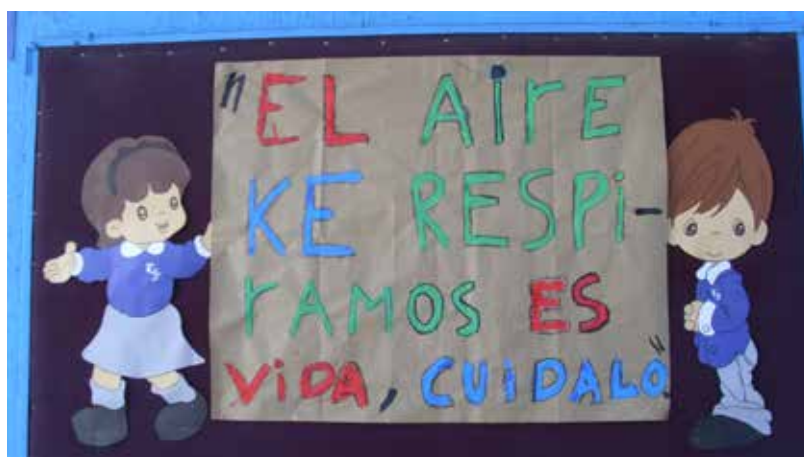 "EL AirE
KE RESPi-
rAMOS ES
ViDA, CUiDALO"